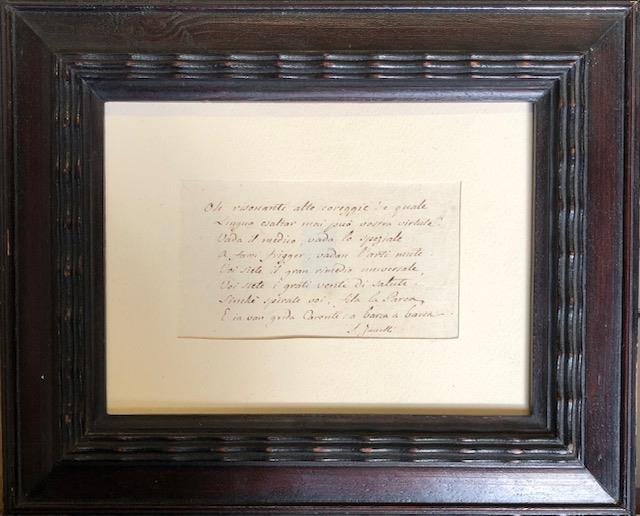 Oh risonanti alte coreggie! e quale
Lingua esaltar mai può vostra virtute?
Vada il medico, vada lo speziale
A farsi frigger, vadan l'arti mute:
Voi siete il gran rimedio universale,
Voi siete i grati vente di salute.
Sinchè spirate voi, fila la Parca,
E in van grida Caronte: a barca a barca.